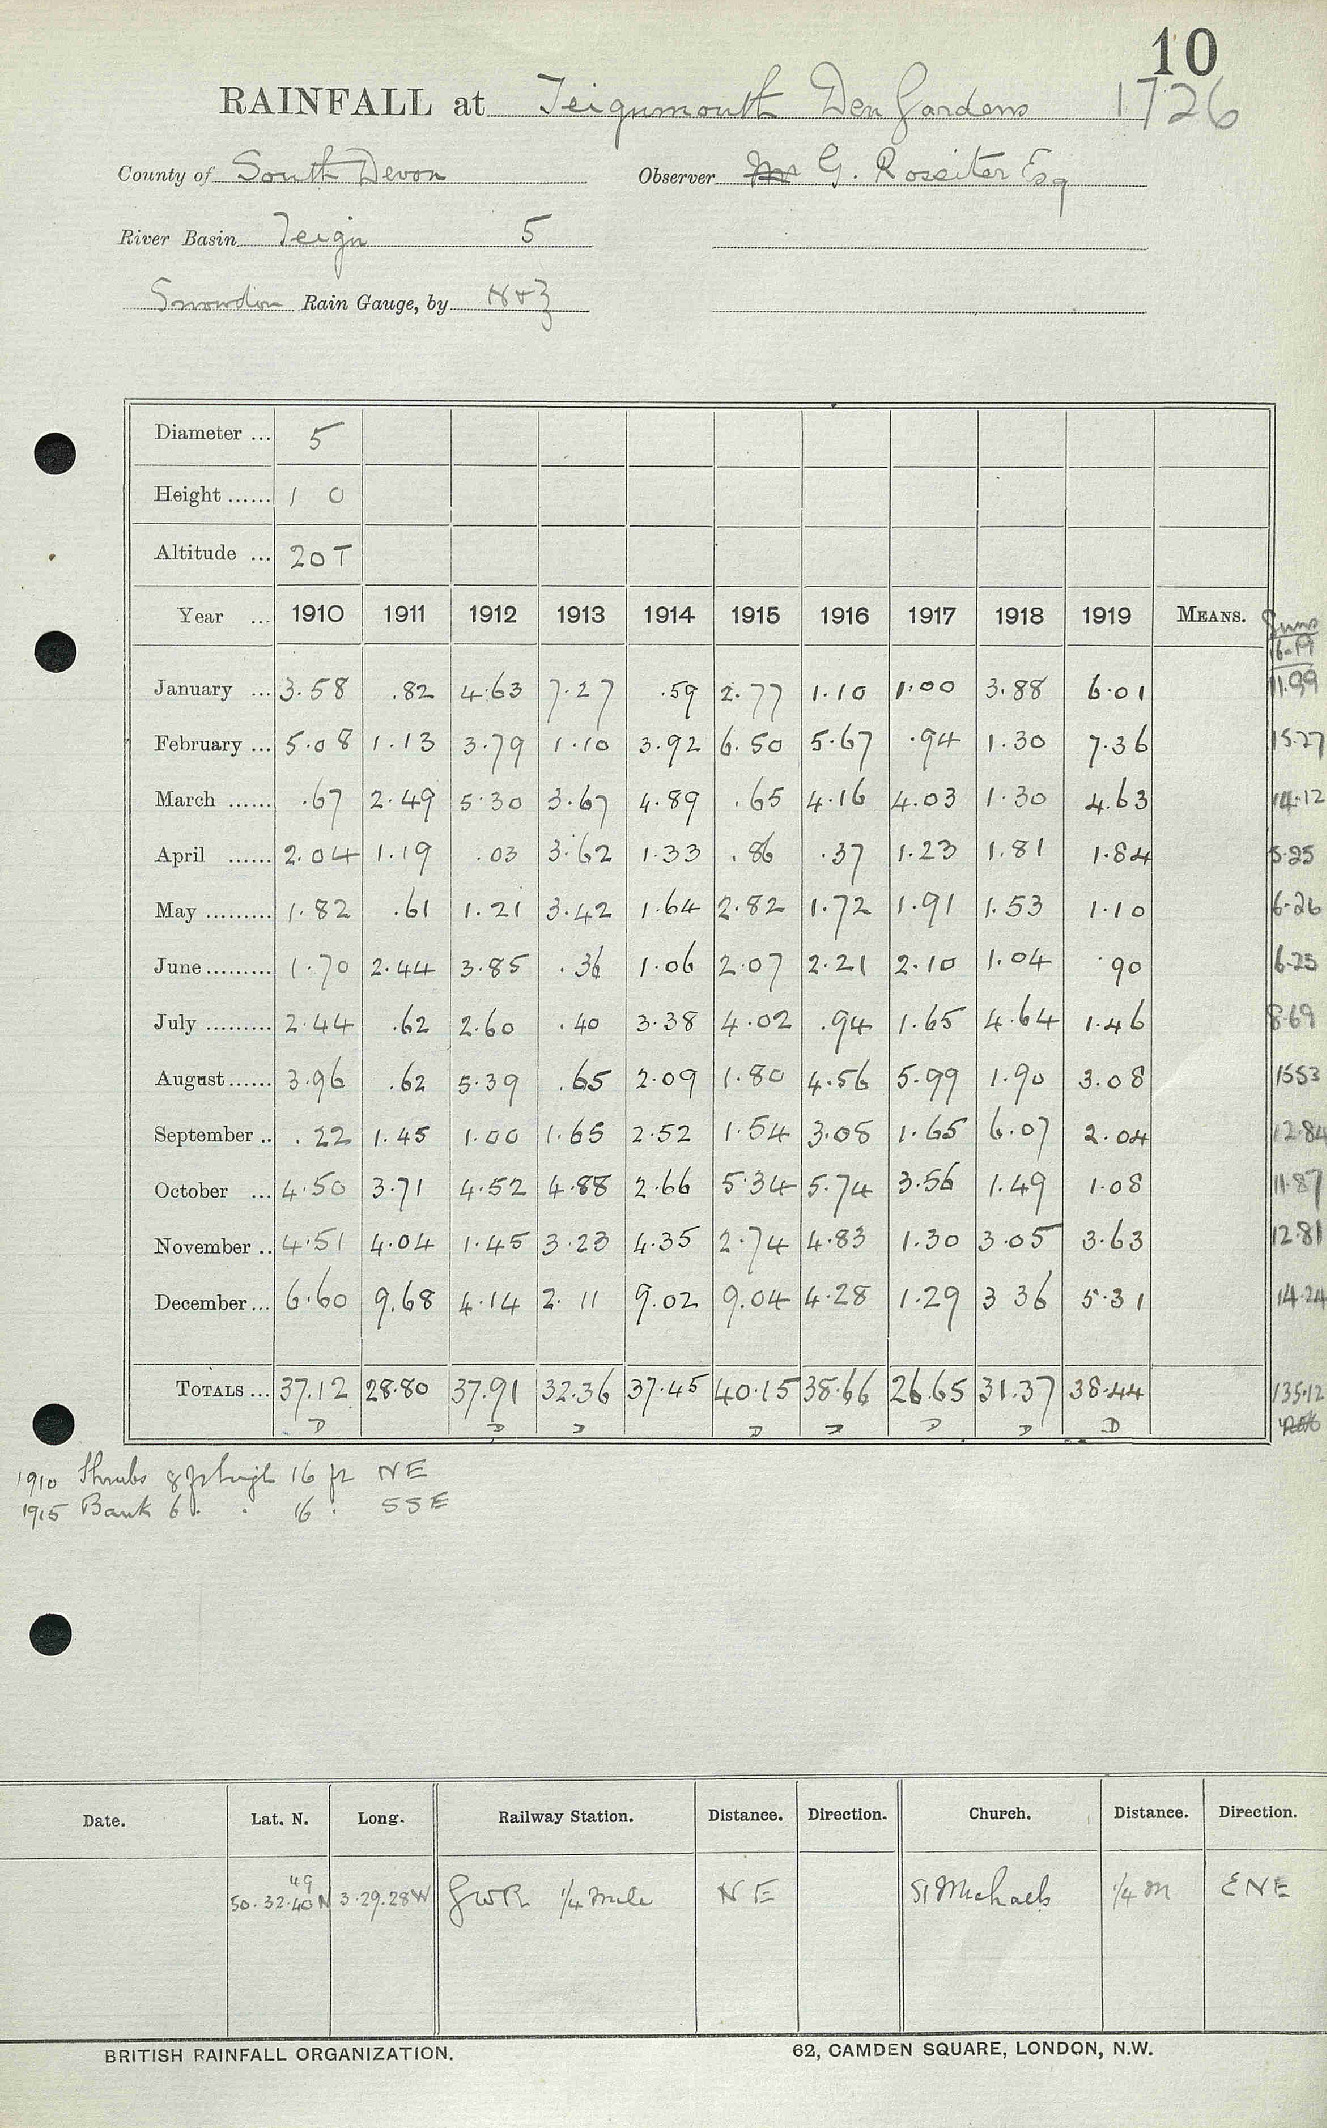 10
RAINFALL at Teignmouth Den Gardens 1726
County of South Devon Observer Mr G. Rossiter Esq
River Basin Teign 5
Snowdon Rain Gauge, by N & Z
Diameter ... 5
Height ...... 1 0
Altitude ... 20 T
Year ... 1910 1911 1912 1913 1914 1915 1916 1917 1918 1919 MEANS. Sums
16-19
January ... 3.58 .82 4.63 7.27 .59 2.77 1.10 1.00 3.88 6.01 11.99
February ... 5.08 1.13 3.79 1.10 3.92 6.50 5.67 .94 1.30 7.36 15.27
March ...... .67 2.49 5.30 3.67 4.89 .65 4.16 4.03 1.30 4.63 14.12
April ...... 2.04 1.19 .03 3.62 1.33 .86 .37 1.23 1.81 1.84 5.25
May ......... 1.82 .61 1.21 3.42 1.64 2.82 1.72 1.91 1.53 1.10 6.26
June ......... 1.70 2.44 3.85 .36 1.06 2.07 2.21 2.10 1.04 .90 6.25
July ......... 2.44 .62 2.60 .40 3.38 4.02 .94 1.65 4.64 1.46 8.69
August ...... 3.96 .62 5.39 .65 2.09 1.80 4.56 5.99 1.90 3.08 1553
September .. .22 1.45 1.00 1.65 2.52 1.54 3.08 1.65 6.07 2.04 12.84
October ... 4.50 3.71 4.52 4.88 2.66 5.34 5.74 3.56 1.49 1.08 11.87
November .. 4.51 4.04 1.45 3.23 4.35 2.74 4.83 1.30 3.05 3.63 12.81
December ... 6.60 9.68 4.14 2.11 9.02 9.04 4.28 1.29 3 36 5.31 14.24
TOTALS ... 37.12 28.80 37.91 32.36 37.45 40.15 38.66 26.65 31.37 38.44 135.12
D D D D D D D D
1910 Shrubs 8 ft high 16 ft NE
1915 Bank 6 . . 16 . SSE
Date. Lat. N. Long. Railway Station. Distance. Direction. Church. Distance. Direction.
49
50.32.40 N 3.29.28 W GWR 1/4 mile NE St Michaels 1/4 m ENE
BRITISH RAINFALL ORGANIZATION. 62, CAMDEN SQUARE, LONDON, N.W.